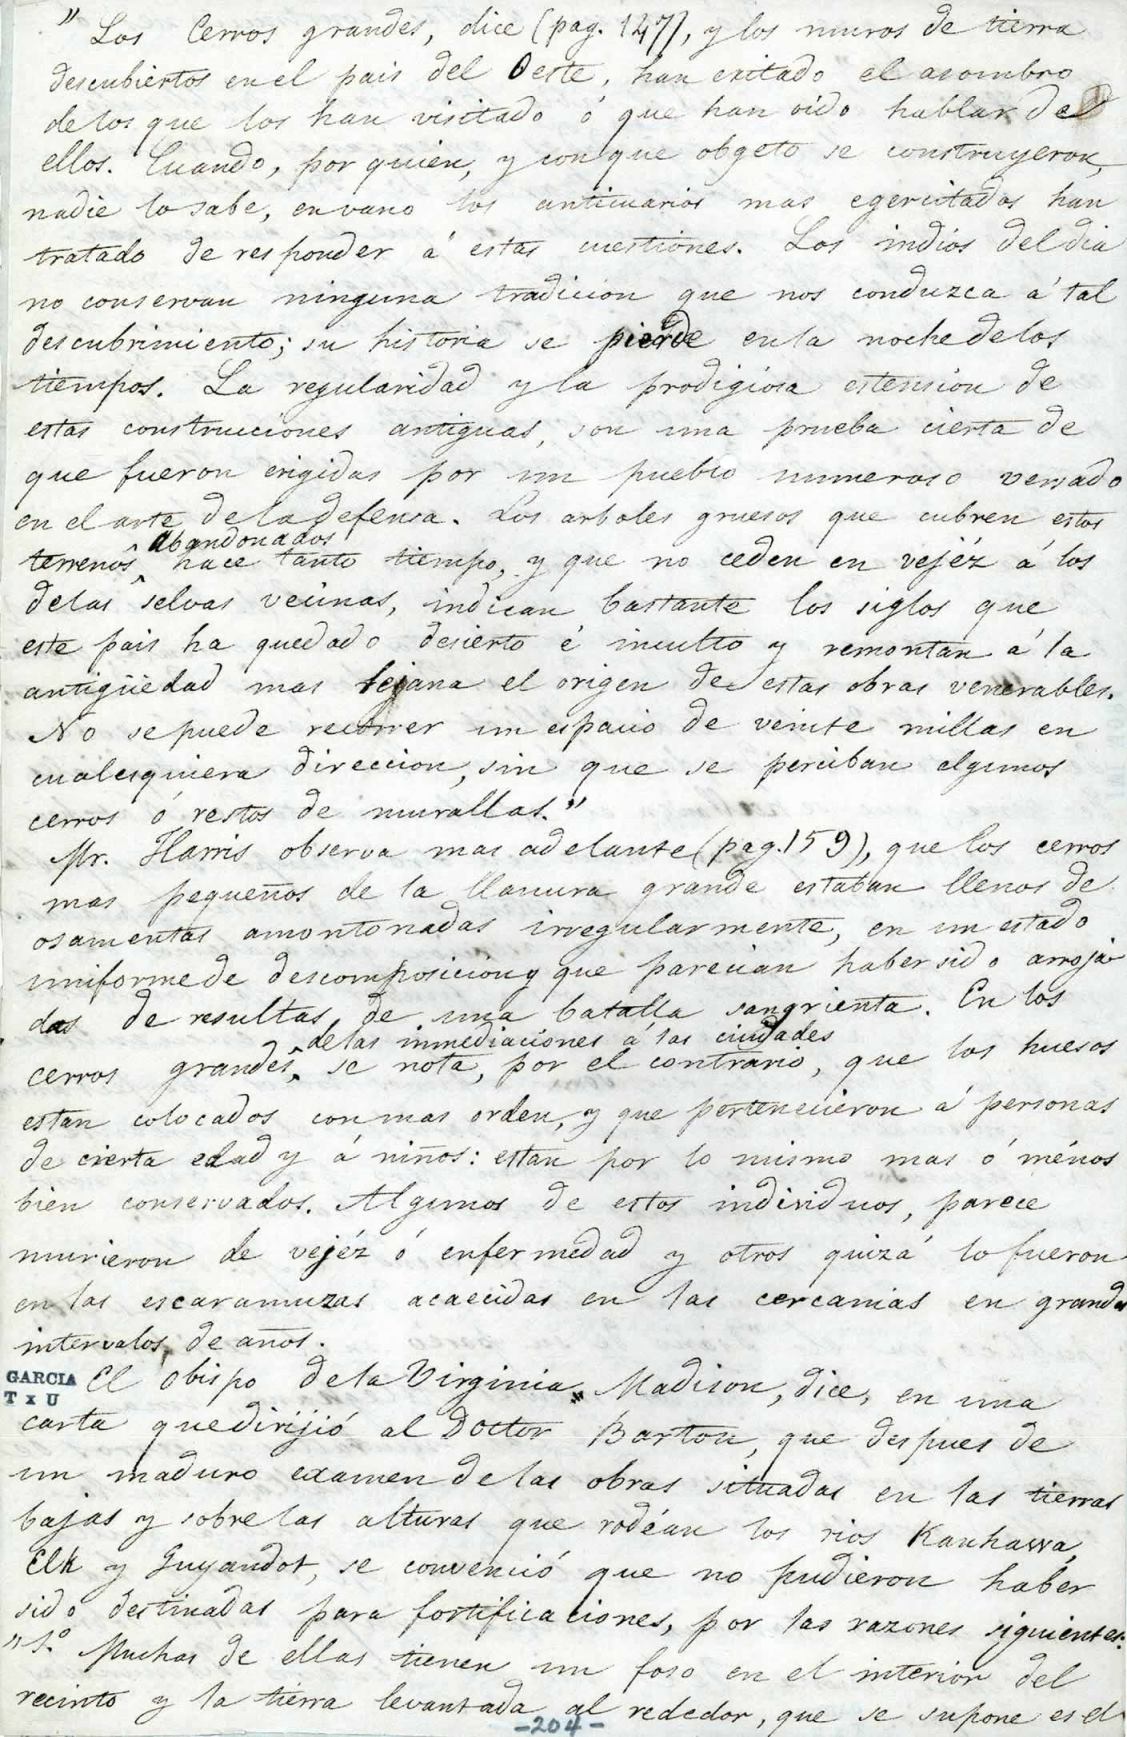 " Los Cerros grandes, dice (pag. 147), y los muros de tierra
descubiertos en el pais del Oeste, han exitado el asombro
de los que los han visitado ó que han oido hablar de
ellos. Cuando, por quien, y con que obgeto se construyeron,
nadie lo sabe, en vano los anticuarios mas egercitados han
tratado de responder á estas cuestiones. Los indios del dia
no conservan ninguna tradicion que nos conduzca á tal
descubrimiento; su historia se pierde en la noche de los
tiempos. La regularidad y la prodigiosa estension de
estas construcciones antiguas, son una prueba cierta de
que fueron erigidas por un pueblo numeroso versado
en el arte de la defensa. Los arboles gruesos que cubren estos
abandonados
terrenos^ hace tanto tiempo, y que no ceden en vejéz á los
de las selvas vecinas, indican bastante los siglos que
este pais ha quedado desierto é inculto y remontan á la
antigüedad mas lejana el origen de estas obras venerables.
No se puede recorrer un espacio de veinte millas en
cualesquiera direccion, sin que se perciban algunos
cerros ó restos de murallas."
Mr. Harris observa mas adelante (pag. 159), que los cerros
mas pequeños de la llanura grande estaban llenos de
osamentas amontonadas irregularmente, en un estado
uniforme de descomposicion y que parecian haber sido arroja-
das de resultas de una batalla sangrienta. En los
de las inmediaciones á las ciudades
cerros grandes^, se nota, por el contrario, que los huesos
estan colocados con mas orden, y que pertenecieron á personas
de cierta edad y á niños: estan por lo mismo mas ó ménos
bien conservados. Algunos de estos individuos, parece
murieron de vejéz ó enfermedad y otros quizá lo fueron
en las escaramuzas acaecidas en las cercanias en grandes
intervalos de años.
GARCIA
T x U
El obispo de la Virginia, Madison, dice, en una
carta que dirijió al Doctor Barton, que despues de
un maduro examen de las obras situadas en las tierras
bajas y sobre las alturas que rodéan los rios Kanhawa,
Elk y Guyandot, se convenció que no pudieron haber
sido destinadas para fortificaciones, por las razones siguientes:
"1.º Muchas de ellas tienen un foso en el interior del
recinto y la tierra levantada al rededor, que se supone es el
-204-